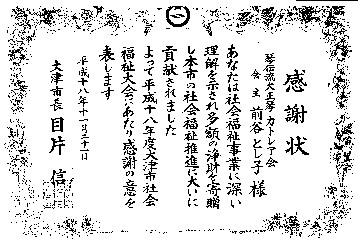 感謝状
琴伝流大正琴カトレア会
会主 前谷とし子 様
あなたは社会福祉事業に深い
理解を示され多額の浄財を寄贈
し本市の社会福祉推進に大いに
貢献されました
よって平成十八年度大津市社会
福祉大会にあたり感謝の意を
表します
平成十八年十一月二十一日
大津市長 目片 信